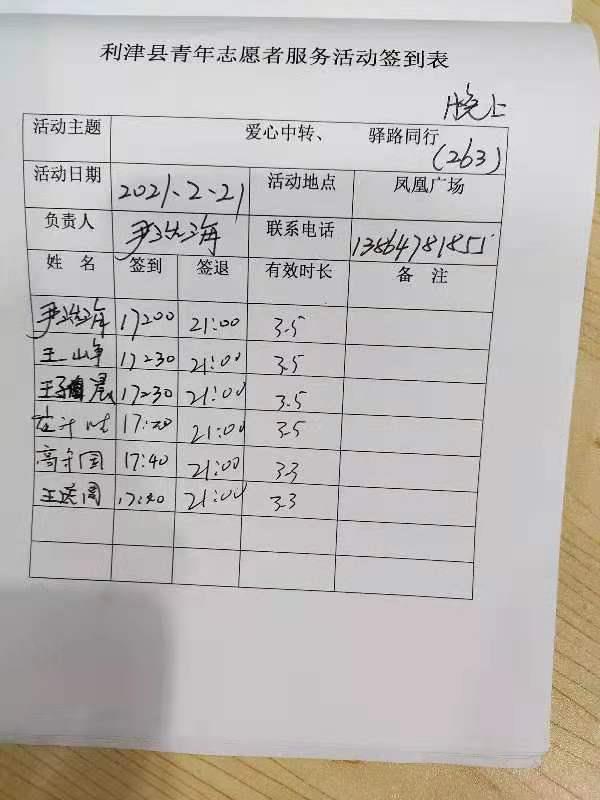 利津县青年志愿者服务活动签到表
晚上
活动主题 爱心中转、 驿路同行
(263)
活动日期 2021、2、21 活动地点 凤凰广场
负责人 尹浩海 联系电话 13864781855
姓 名 签到 签退 有效时长 备 注
尹浩海 17:00 21:00 3.5
17:30 21:00 3.5
17:30 21:00 3.5
21:00 3.5
高守国 17:40 21:00 3.3
21:00 3.3